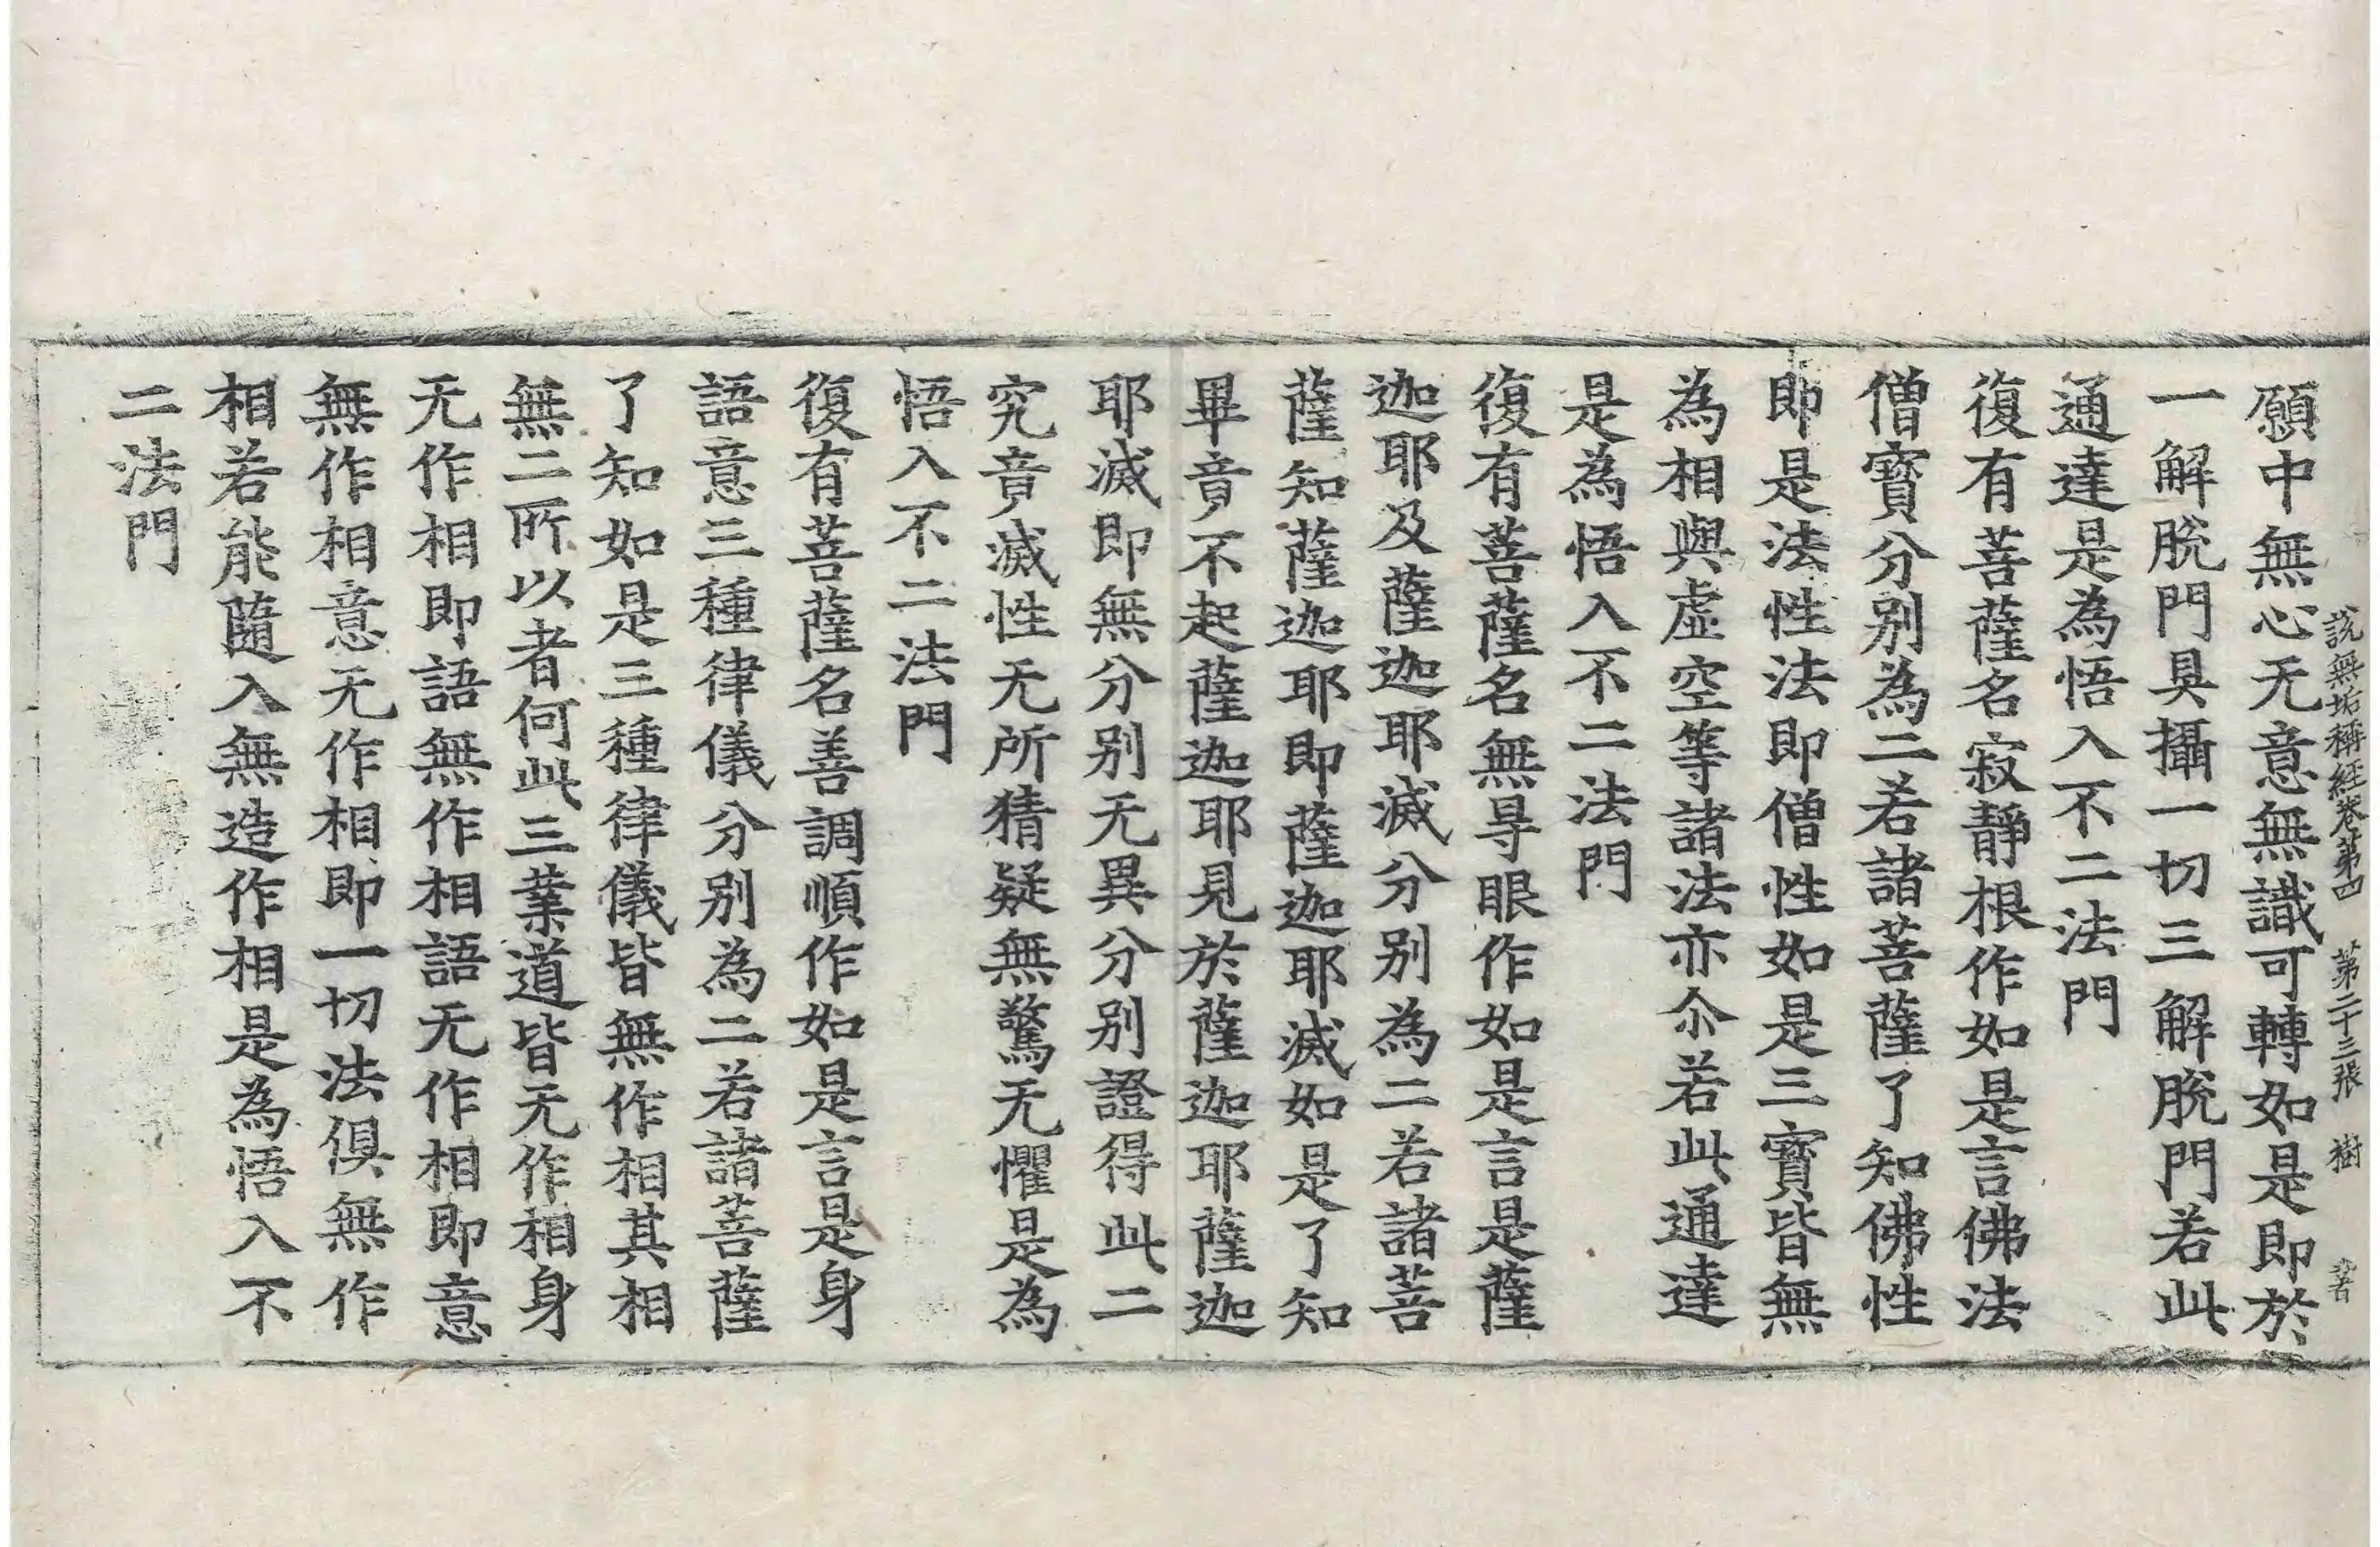 說無垢稱經卷第四 第二十三張 樹
願中無心无意無識可轉如是即於
一解脫門具攝一切三解脫門若此
通達是為悟入不二法門
復有菩薩名寂靜根作如是言佛法
僧寶分別為二若諸菩薩了知佛性
即是法性法即僧性如是三寶皆無
為相與虛空等諸法亦尒若此通達
是為悟入不二法門
復有菩薩名無㝵眼作如是言是薩
迦耶及薩迦耶滅分別為二若諸菩
薩知薩迦耶即薩迦耶滅如是了知
畢竟不起薩迦耶見於薩迦耶薩迦
耶滅即無分別无異分別證得此二
究竟滅性无所猜疑無驚无懼是為
悟入不二法門
復有菩薩名善調順作如是言是身
語意三種律儀分別為二若諸菩薩
了知如是三種律儀皆無作相其相
無二所以者何此三業道皆无作相身
无作相即語無作相語无作相即意
無作相意无作相即一切法俱無作
相若能隨入無造作相是為悟入不
二法門